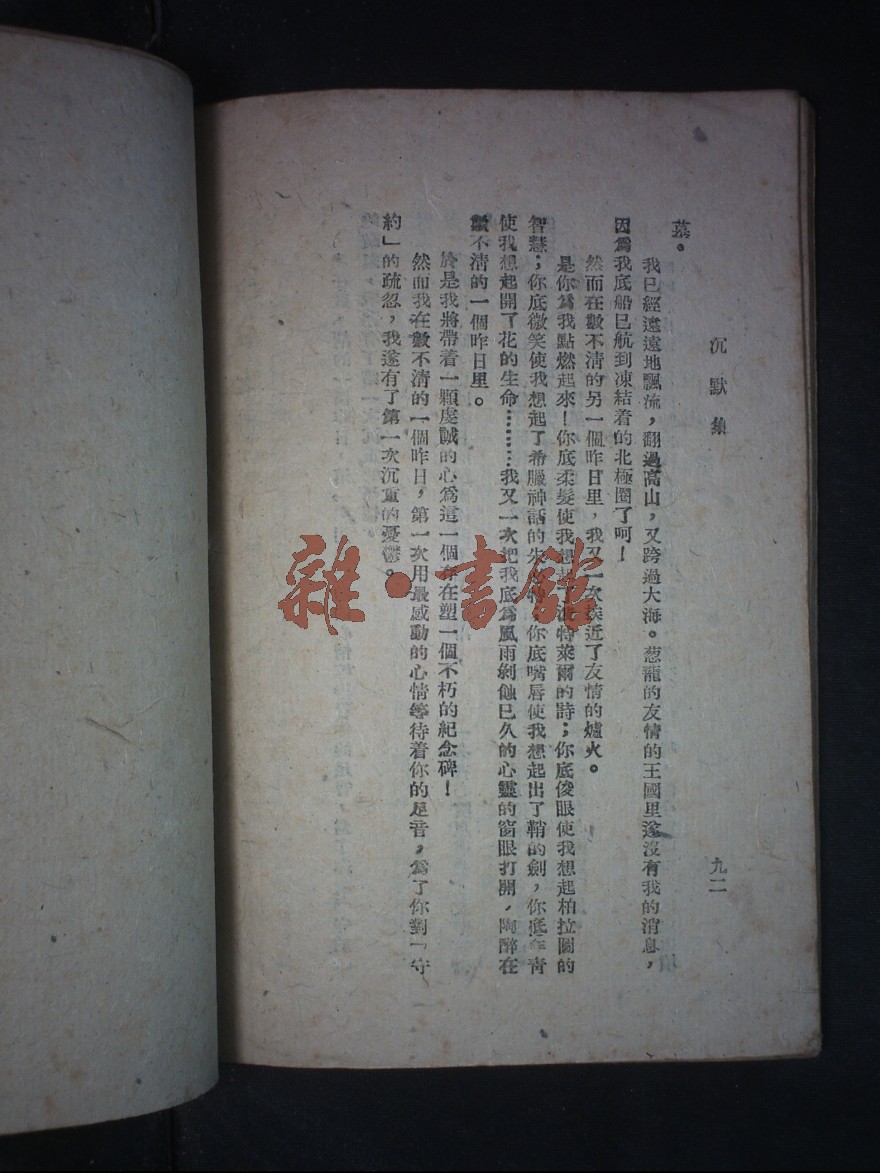 沉默集
九二
墓。
我已經遠遠地飄流，翻過高山，又跨過大海。葱蘢的友情的王國里遂沒有我的消息，
因爲我底船已航到凍結着的北極圈了呵！
然而在數不清的另一個昨日里，我又一次挨近了友情的爐火。
是你爲我點燃起來！你底柔髮使我想起了特萊爾的詩；你底俊眼使我想起柏拉圖的
智慧；你底微笑使我想起了希臘神話的，你底嘴唇使我想起出了鞘的劍，你底年青
使我想起開了花的生命………我又一次把我底爲風雨剝蝕已久的心靈的窗眼打開，陶醉在
數不清的一個昨日里。
於是我將帶着一顆虔誠的心爲這一個存在塑一個不朽的紀念碑！
然而我在數不清的一個昨日，第一次用最感動的心情等待着你的足音，爲了你對「守
約」的疏忽，我遂有了第一次沉重的憂鬱。
雜·書館